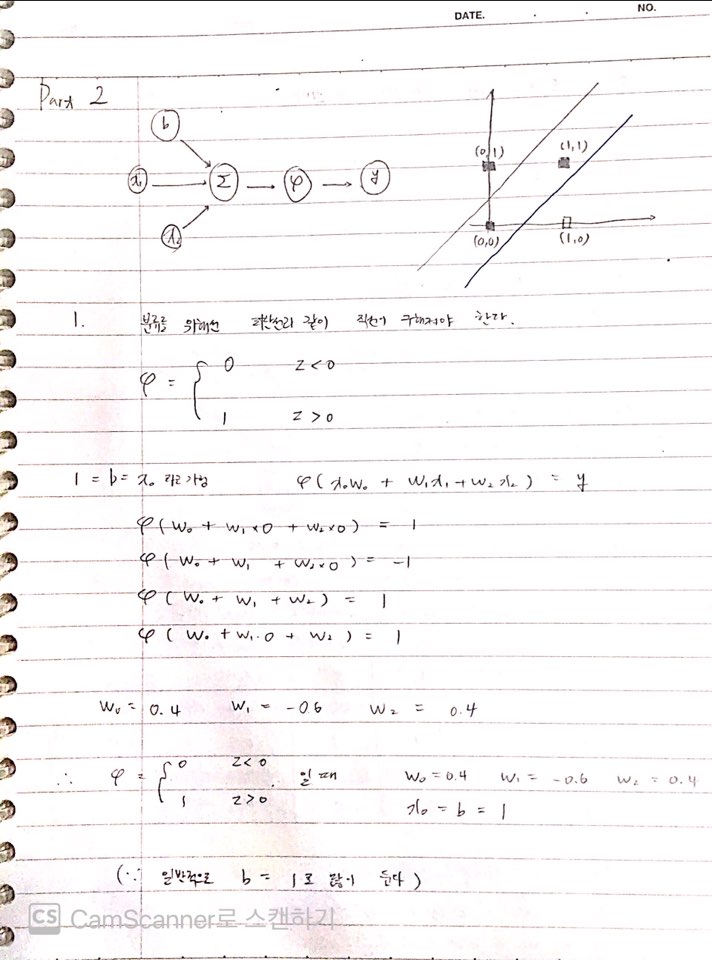 DATE. . . NO.
Part 2
b
x₁ Σ φ y
x₂
(0,1) (1,1)
(0,0) (1,0)
1. 분류를 위해선 파란선과 같이 직선이 구해져야 한다.
φ = { 0 z < 0
1 z > 0
1 = b = x₀ 라고 가정 φ ( x₀w₀ + w₁x₁ + w₂x₂ ) = y
φ ( w₀ + w₁×0 + w₂×0 ) = 1
φ ( w₀ + w₁ + w₂×0 ) = -1
φ ( w₀ + w₁ + w₂ ) = 1
φ ( w₀ + w₁·0 + w₂ ) = 1
w₀ = 0.4 w₁ = -0.6 w₂ = 0.4
∴ φ = { 0 z<0 일 때 w₀ = 0.4 w₁ = -0.6 w₂ = 0.4
1 z>0. x₀ = b = 1
(∵ 일반적으로 b = 1로 많이 둔다)
CS CamScanner로 스캔하기